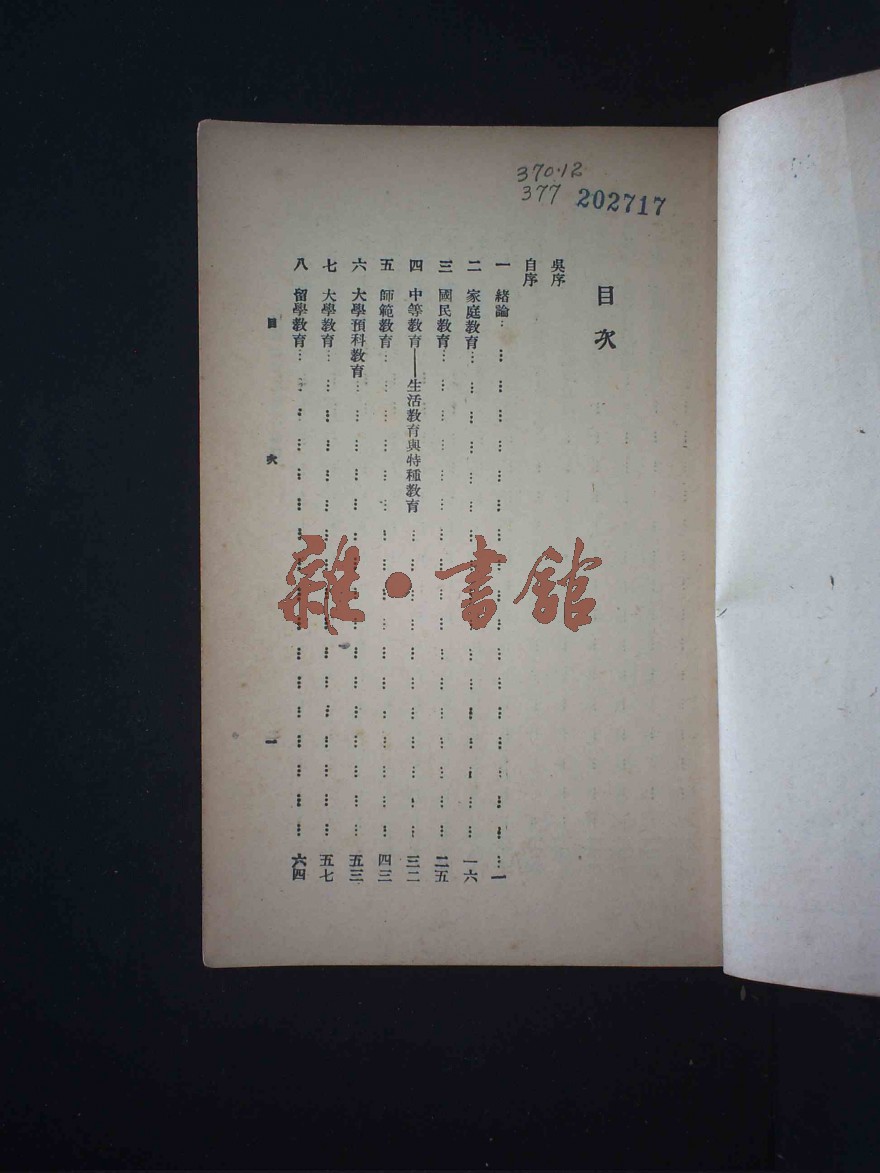 370.12
377
202717
目次
吳序
自序
一 緒論…………………………一
二 家庭教育…………………………一六
三 國民教育…………………………二五
四 中等教育——生活教育與特種教育…………………………三二
五 師範教育…………………………四三
六 大學預科教育…………………………五三
七 大學教育…………………………五七
八 留學教育…………………………六四
目 次 一
雜·書館